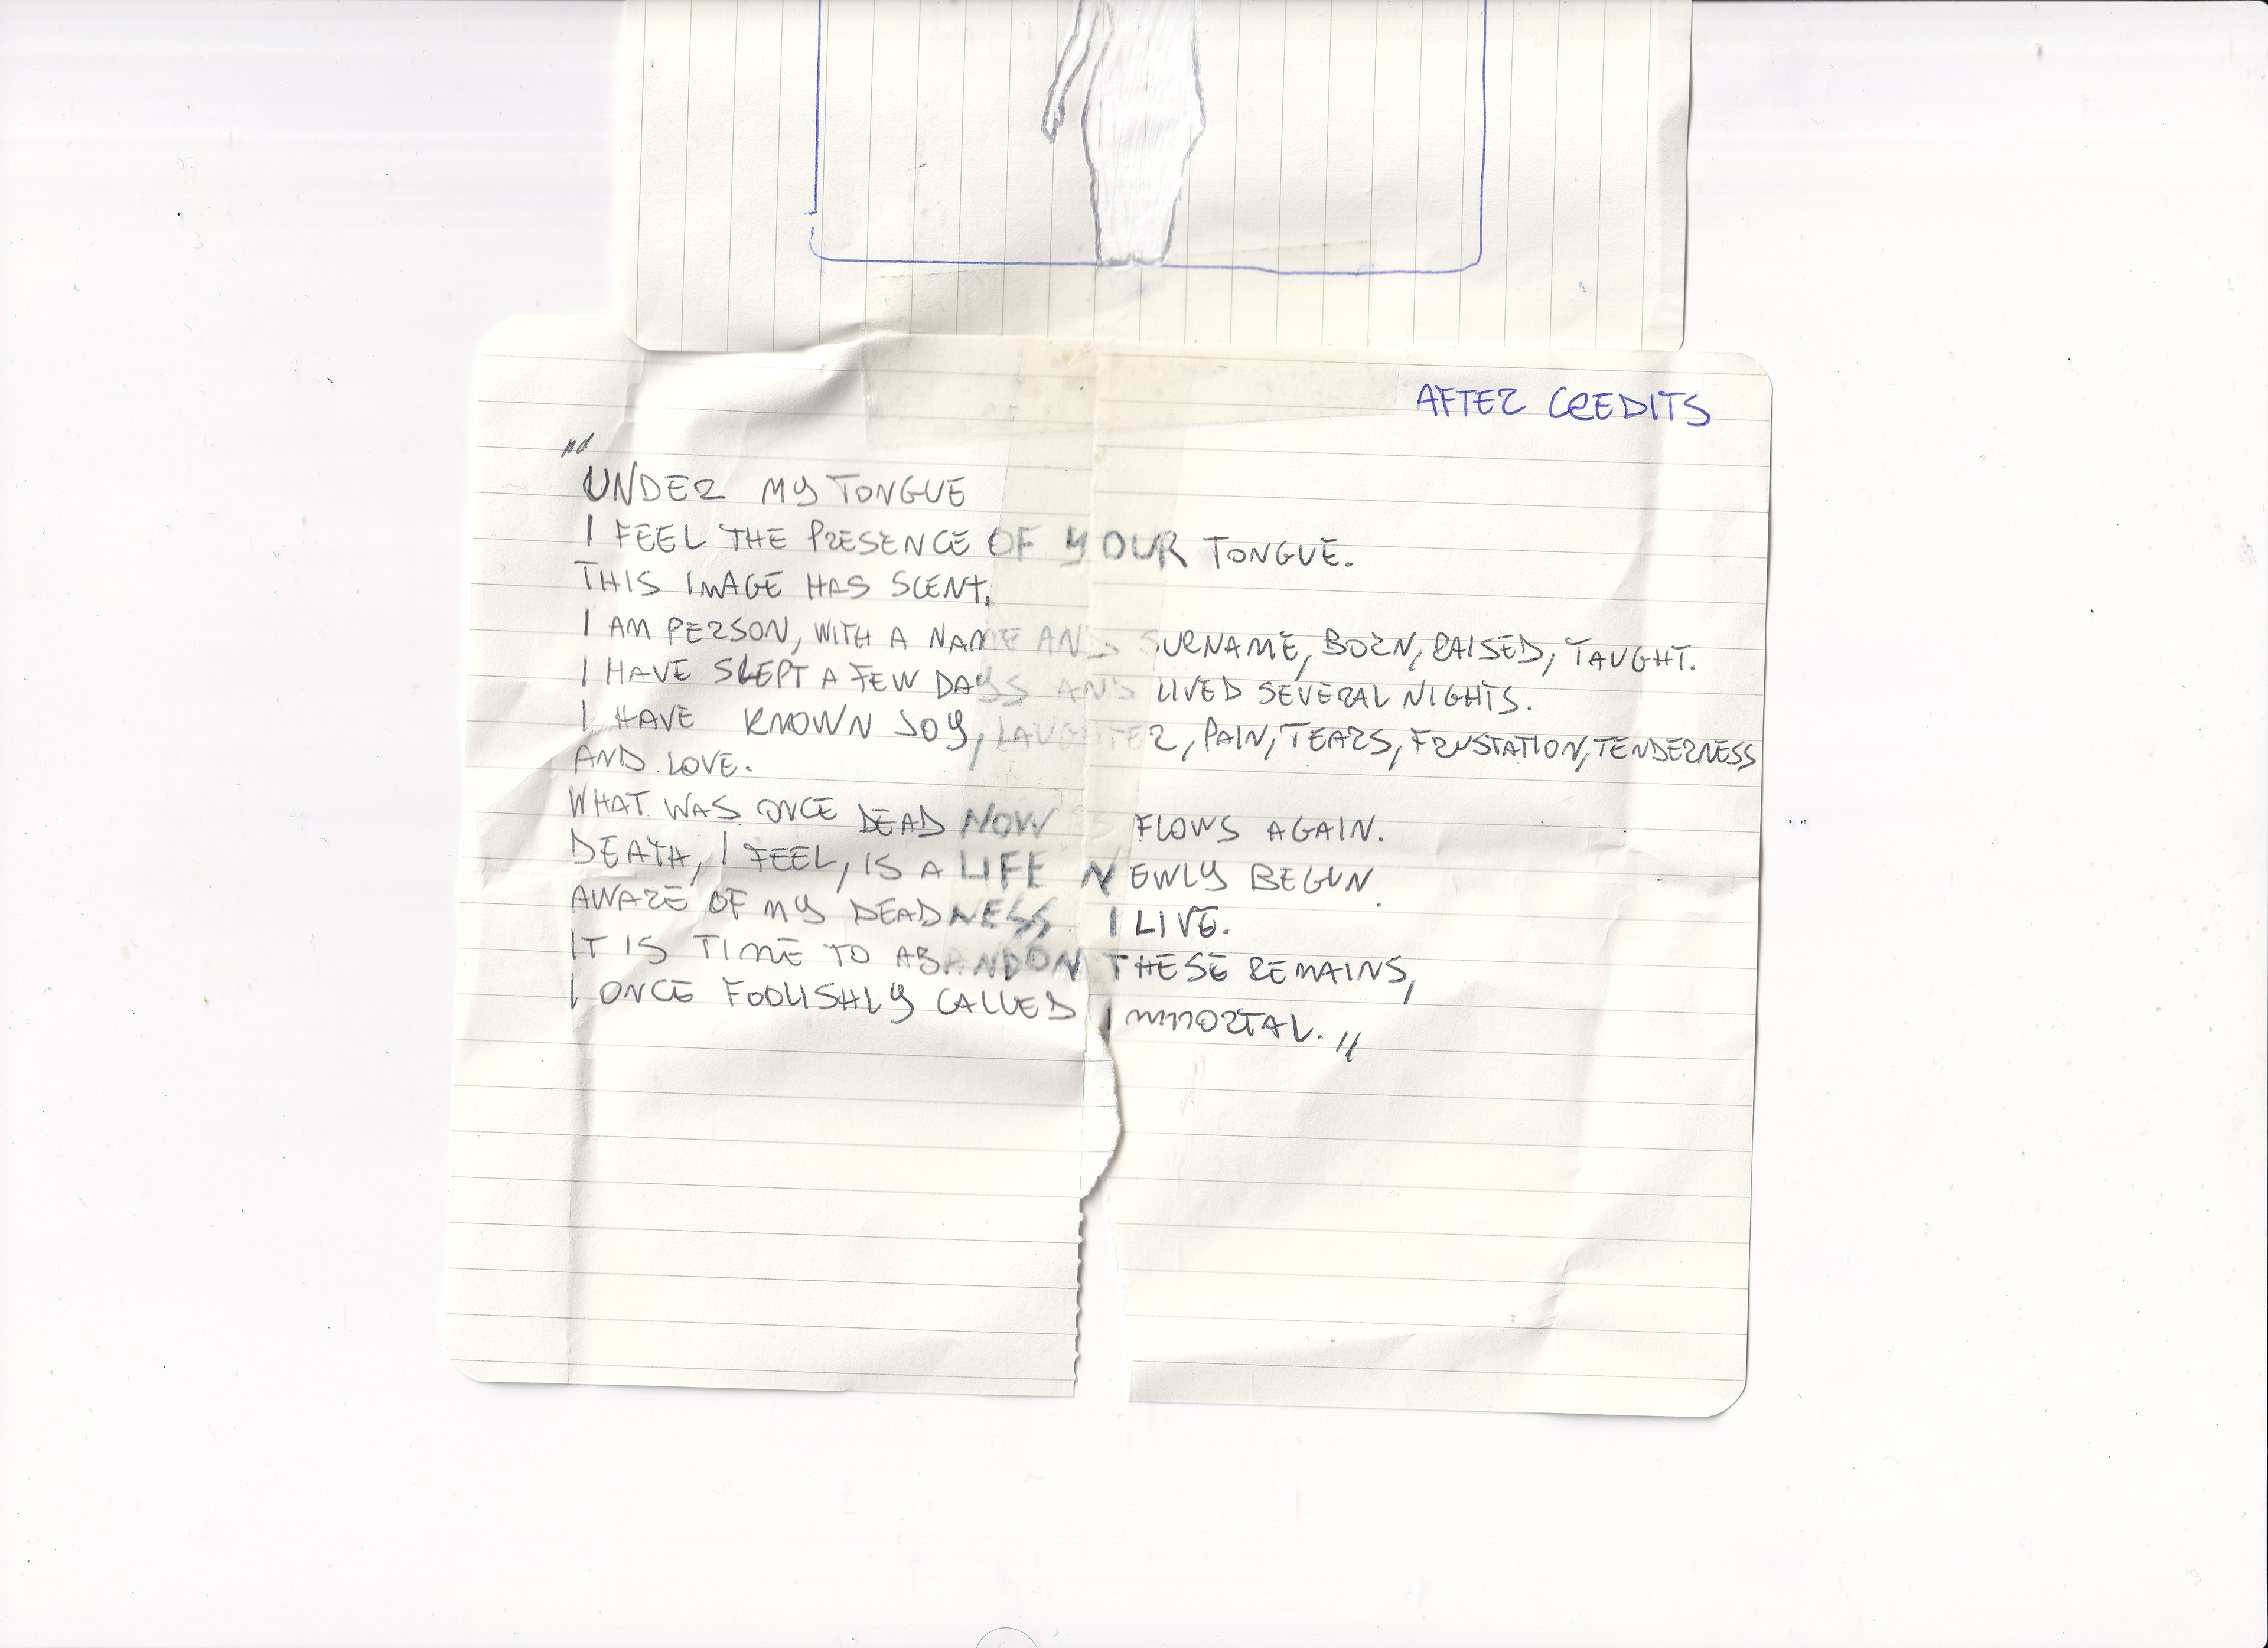 AFTER CREDITS
"UNDER MY TONGUE
I FEEL THE PRESENCE OF YOUR TONGUE.
THIS IMAGE HAS SCENT.
I AM PERSON, WITH A NAME AND SURNAME, BORN, RAISED, TAUGHT.
I HAVE SLEPT A FEW DAYS AND LIVED SEVERAL NIGHTS.
I HAVE KNOWN JOY, LAUGHTER, PAIN, TEARS, FRUSTATION, TENDERNESS
AND LOVE.
WHAT WAS ONCE DEAD NOW FLOWS AGAIN.
DEATH, I FEEL, IS A LIFE NEWLY BEGUN.
AWARE OF MY DEADNESS I LIVE.
IT IS TIME TO ABANDON THESE REMAINS,
I ONCE FOOLISHLY CALLED IMMORTAL."